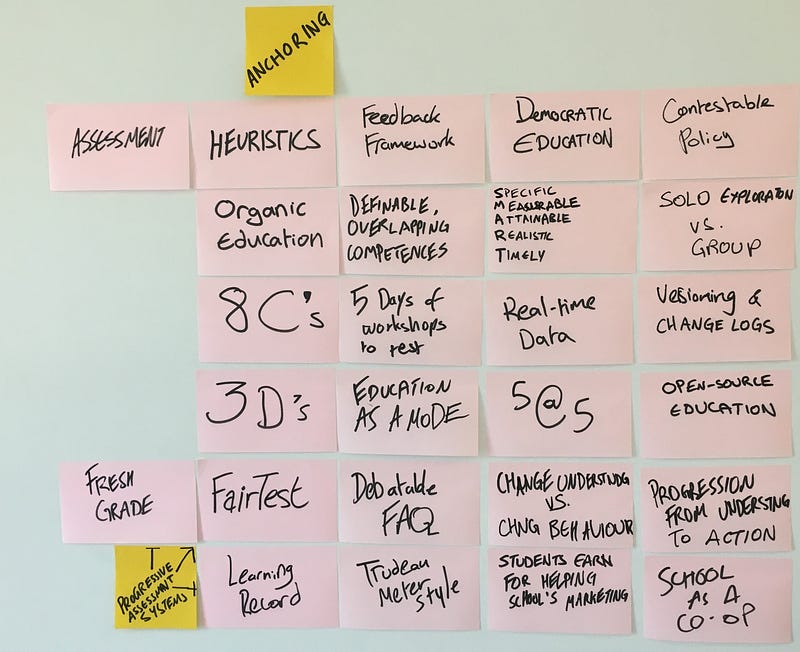 ANCHORING
ASSESSMENT
HEURISTICS
Feedback
Framework
DEMOCRATIC
EDUCATION
Contestable
Policy
Organic
Education
DEFINABLE,
OVERLAPPING
COMPETENCES
SPECIFIC
MEASURABLE
ATTAINABLE
REALISTIC
TIMELY
SOLO EXPLORATION
VS.
GROUP
8C's
5 Days of
workshops
to test
Real-time
Data
Versioning &
CHANGE LOGS
3D's
EDUCATION
AS A MODE
5@5
OPEN-SOURCE
EDUCATION
FRESH
GRADE
FairTest
Debatable
FAQ
CHANGE UNDERSTNDG
VS.
CHNG BEHAVIOUR
PROGRESSION
FROM UNDERSTNG
TO ACTION
PROGRESSIVE
ASSESSMENT
SYSTEMS
Learning
Record
Trudeau
Meter
style
STUDENTS EARN
FOR HELPING
SCHOOL'S MARKETING
SCHOOL
AS A
CO-OP